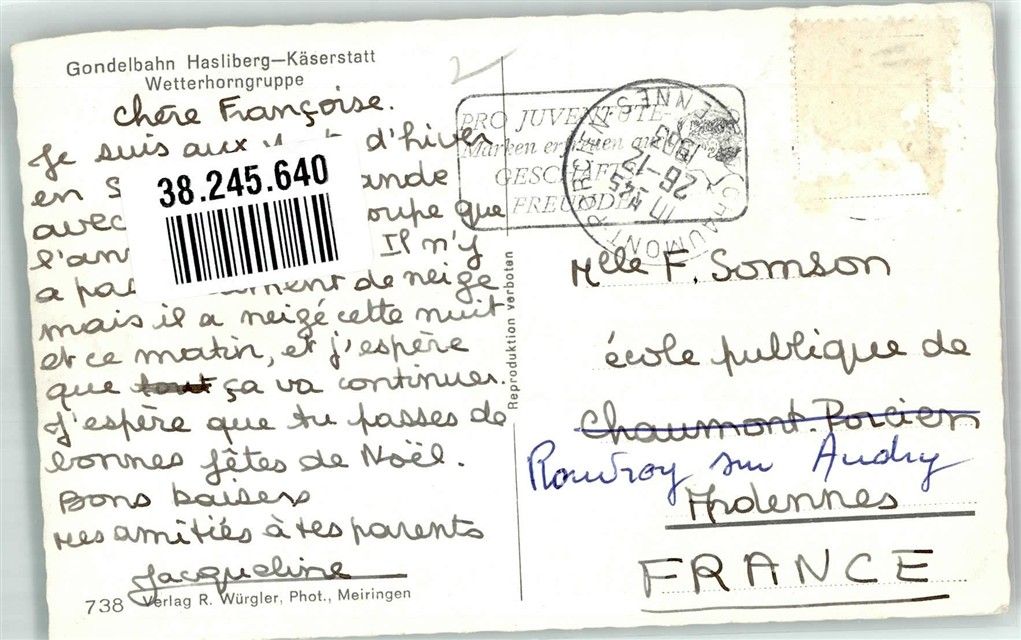 Gondelbahn Hasliberg–Käserstatt
Wetterhorngruppe
Chère Françoise.
Je suis aux d'hiver
en S ande
avec oupe que
l'an Il n'y
a pas ment de neige
mais il a neigé cette nuit
et ce matin, et j'espère
que tout ça va continuer.
J'espère que tu passes de
bonnes fêtes de Noël.
Bons baisers
mes amitiés à tes parents
Jacqueline
738 Verlag R. Würgler, Phot., Meiringen
38.245.640
Reproduktion verboten
2
PRO JUVENTUTE
Marken erfreuen
GESCHÄFTS
FREUNDE
CHAUMONT PORCIEN
ARDENNES
26-12
Mlle F. Somson
école publique de
Chaumont-Porcien
Rouvroy sur Audry
Ardennes
FRANCE